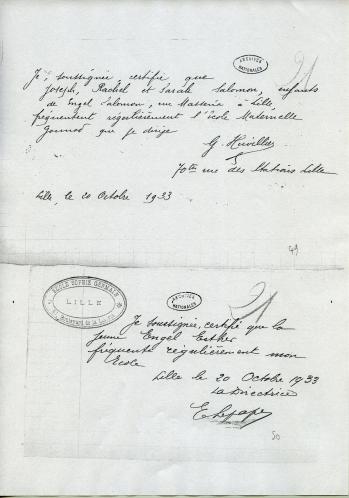 ARCHIVES NATIONALES
21
Je, soussignée, certifie que
Joseph, Rachel et Sarah Salomon, enfants
de Engel Salomon, en Masseria à Lille,
fréquentent régulièrement l'école Maternelle
Gounod que je dirige
70 ter rue des Stations Lille
Lille, le 20 Octobre 1933
49
ECOLE SOPHIE GERMAIN
LILLE
Boulevard de la
ARCHIVES NATIONALES
21
Je soussignée, certifie que la
jeune Engel Esther
fréquente régulièrement mon
Ecole
Lille le 20 Octobre 1933
La Directrice
E Lepape
50